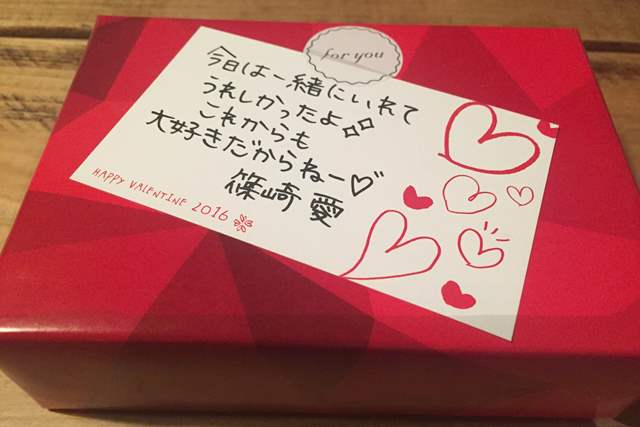 for you
今日は一緒にいれて
うれしかったよ
これからも
大好きだからねー♡
篠崎 愛
HAPPY VALENTINE 2016